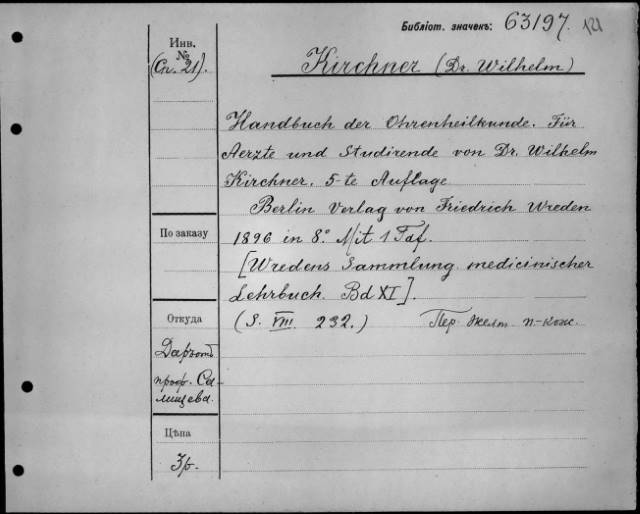 Библіот. значекъ: 63197. 121
Инв. №
(Сп. 21).
Kirchner (Dr. Wilhelm)
Handbuch der Ohrenheilkunde. Für
Aerzte und Studirende von Dr. Wilhelm
Kirchner. 5-te Auflage
Berlin Verlag von Friedrich Wreden
По заказу
1896 in 8.º Mit 1 Taf.
[Wredens Sammlung medicinischer
Lehrbuch. Bd XI].
Откуда
(S. VIII. 232.) Пер. желт. п-кож.
Даръ отъ
проф. Са-
лищева.
Цѣна
3р.